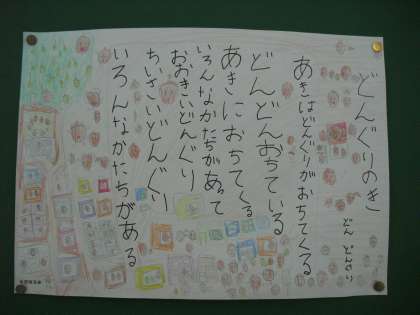 どんぐりのき
どん どんぐり
あきはどんぐりがおちてくる
どんどんおちている
あきにおちてくる
いろんなかたちがあって
おおきいどんぐり
ちいさいどんぐり
いろんなかたちがある